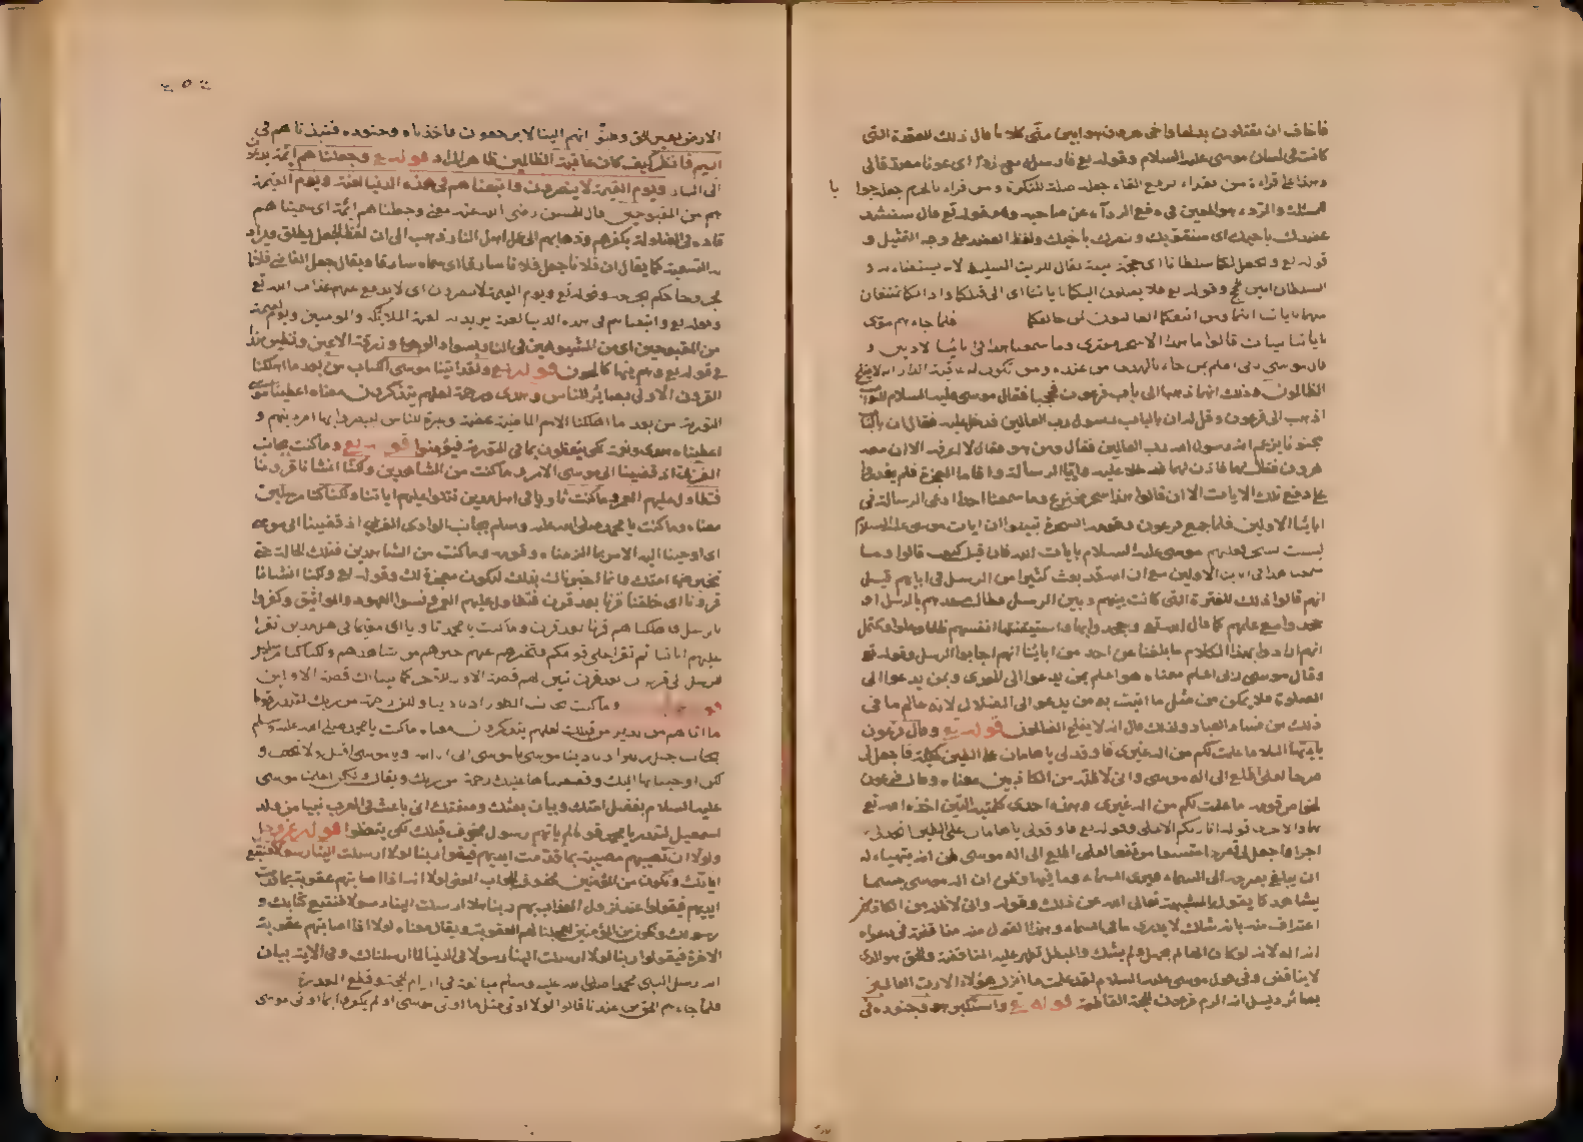 فاخاف ان يقتلون بدلها واخى هرون هو افصح منى كلاما قال ذلك للعقدة التى
كانت فى لسان موسى عليه السلام وقوله تع فارسله معى ردءا اى عونا مصدقا لى
وهذا على قراءة من يقراء برفع القاف جعله صلة للنكرة ومن قراء بالجزم جعله جوابا
المسئلة والردء هو المعين فى دفع الردآء عن صاحبه وقوله تع قال سنشد
عضدك باخيك اى سنقويك وننصرك باخيك ولفظ العضد على وجه التمثيل و
قوله تع ونجعل لكما سلطانا اى حجة
وقوله تع فلا يصلون اليكما باياتنا اى الى قتلكما
باياتنا انتما ومن اتبعكما الغالبون فلما جاءهم موسى
باياتنا بينات قالوا ما هذا الا سحر مفترى وما سمعنا بهذا فى ابائنا الاولين و
قال موسى ربى اعلم بمن جاء بالهدى من عنده ومن تكون له عاقبة الدار انه لا يفلح
الظالمون وذلك انهما ذهبا الى باب فرعون فقال موسى عليه السلام للبواب
اذهب الى فرعون وقل له ان بالباب رسول رب العالمين فدخل عليه فقال ان بالباب
مجنونا يزعم انه رسول الله رب العالمين فقال ومن هو فقال لا اعرفه الا ان معه
هرون فقال لهما فاذن لهما فدخلا عليه واديا الرسالة واقاما المعجزة فلم يقدروا
على دفع تلك الايات الا ان قالوا هذا سحر مخترع وما سمعنا احدا ادعى الرسالة فى
ابائنا الاولين فلما جمع فرعون وقومه السحرة تبينوا ان ايات موسى عليه السلام
ليست بسحر لعلهم موسى عليه السلام بايات الله فان قيل كيف قالوا وما
سمعنا بهذا فى ابائنا الاولين مع ان الله قد بعث كثيرا من الرسل فى ابائهم قيل
انهم قالوا ذلك للفترة التى كانت بينهم وبين الرسل بالرسل او
عليهم كما قال الله تع وجحدوا بها واستيقنتها انفسهم ظلما وعلوا ويحتمل
انهم ارادوا بهذا الكلام ما بلغنا عن احد من ابائنا انهم اجابوا الرسل وقوله تع
وقال موسى ربى اعلم معناه هو اعلم بمن يدعوا الى الهدى وبمن يدعوا الى
الضلالة فلا يمكن من مثل ما اتيت به من يدعو الى الضلال لانه عالم بما فى
ذلك من فساد العباد ولذلك قال انه لا يفلح الظالمون قوله تع وقال فرعون
يا ايها الملأ ما علمت لكم من اله غيرى فاوقد لى يا هامان على الطين فاجعل لى
صرحا لعلى اطلع الى اله موسى وانى لاظنه من الكاذبين معناه وقال فرعون
لخواص قومه ما علمت لكم من اله غيرى وهذه احدى كلمتيه اللتين اخذه الله تع
بهما والاخرى قوله انا ربكم الاعلى وقوله تع فاوقد لى يا هامان على الطين اتخذ لى
اجرا واجعل لى قصرا مرتفعا لعلى اطلع الى اله موسى ظن انه يتهياء له
ان يبلغ بصرحه الى السماء فيرى السماء وما فيها وظن ان اله موسى جسما
يشاهد كما يقول المشبهة تعالى الله عن ذلك وقوله وانى لاظنه من الكاذبين
اعتراف منه بانه شاك لا يدرى ما فى السماء وهذا القول منه مناقضة فى دعواه
انه اله لانه لو كان الها لم يجهل ولم يشك والمبطل تظهر عليه المناقضة والمحق هو الذى
لا يناقض وفى قول موسى عليه السلام لقد علمت ما انزل هؤلاء الا رب العالمين
بصائر دليل انه الزم فرعون الحجة القاطعة قوله تع واستكبر هو وجنوده فى
الارض بغير الحق وظنوا انهم الينا لا يرجعون فاخذناه وجنوده فنبذناهم فى
اليم فانظر كيف كان عاقبة الظالمين ظاهر المراد قوله تع وجعلناهم ائمة يدعون
الى النار ويوم القيمة لا ينصرون واتبعناهم فى هذه الدنيا لعنة ويوم القيمة
هم من المقبوحين قال الحسن رضى الله عنه معنى وجعلناهم ائمة اى سميناهم
قادة فى الضلالة بكفرهم ودعائهم الى عمل اهل النار ذهب الى ان لفظ الجعل يطلق ويراد
به التسمية كما يقال ان فلانا جعل فلانا سارقا اى سماه سارقا ويقال جعل القاضى فلانا
وقوله تع ويوم القيمة لا ينصرون اى لا يدفع عنهم عذاب الله تع
وقوله تع واتبعناهم فى هذه الدنيا لعنة يريد به لعنة الملائكة والمومنين ويوم القيمة
من المقبوحين اى من المشوهين فى النار بسواد الوجوه وزرقة الاعين ونظير هذا
فى قوله تع وهم فيها كالحون قوله تع ولقد اتينا موسى الكتاب من بعد ما اهلكنا
القرون الاولى بصائر للناس وهدى ورحمة لعلهم يتذكرون معناه اعطينا موسى
التورية من بعد ما اهلكنا الامم الماضية عظة وعبرة للناس ليبصروا بها امر دينهم و
اعطيناه هدى ونعمة لكى يتعظون بما فى التورية فيؤمنوا قوله تع وما كنت بجانب
الغربى اذ قضينا الى موسى الامر وما كنت من الشاهدين ولكنا انشأنا قرونا
فتطاول عليهم العمر وما كنت ثاويا فى اهل مدين تتلوا عليهم اياتنا ولكنا كنا مرسلين
معناه وما كنت يا محمد صلى الله عليه وسلم بجانب الوادى الغربى اذ قضينا الى موسى
اى اوحينا اليه الامر بما الزمناه وقومه وما كنت من الشاهدين فتلك الحالة حتى
تخبر بها امتك وانما اخبرناك بذلك ليكون معجزة لك وقوله تع ولكنا انشانا
قرونا اى خلقنا قرنا بعد قرن فتطاول عليهم العمر ونسوا العهود والمواثيق وكفروا
بالرسل فاهلكناهم قرنا بعد قرن وما كنت يا محمد ثاويا اى مقيما فى اهل مدين تقرا
عليهم اياتنا ثم تقرا على قومكم فتخبرهم عنهم خبرهم من شاهدهم ولكنا كنا مرسلين
كما بينا لك قصة الاولين
وما كنت بجانب الطور اذ نادينا ولكن رحمة من ربك لتنذر قوما
ما اتاهم من نذير من قبلك لعلهم يتذكرون معناه ما كنت يا محمد صلى الله عليه وسلم
بجانب جبل اذ نادينا موسى يا موسى انى انا الله ويا موسى اقبل ولا تخف و
لكن اوحينا بها اليك وقصصناها عليك رحمة من ربك ويقال ولكن اعلمنا موسى
عليه السلام بفضل امتك وبيان بعثتك وصفتك انى باعث فى العرب نبيا من ولد
اسمعيل لتنذر يا محمد قوما لم ياتهم رسول مخوف قبلك لكى يتعظوا قوله عز وجل
ولولا ان تصيبهم مصيبة بما قدمت ايديهم فيقولوا ربنا لولا ارسلت الينا رسولا فنتبع
اياتك ونكون من المؤمنين محذوف الجواب المعنى لولا انه اذا اصابتهم عقوبة بما قدمت
ايديهم فيقولوا عند نزول العذاب بهم ربنا هلا ارسلت الينا رسولا فنتبع كتابك و
رسولك ونكون من المؤمنين لعجلنا لهم العقوبة ويقال معناه لولا اذا اصابتهم عقوبة
الاخرة فيقولوا ربنا لولا ارسلت الينا رسولا فى الدنيا لما ارسلناك وفى الاية بيان
انه ارسل النبى محمدا صلى الله عليه وسلم مبالغة فى الزام الحجة وقطع المعذرة
فلما جاءهم الحق من عندنا قالوا لولا اوتى مثل ما اوتى موسى او لم يكفروا بما اوتى موسى